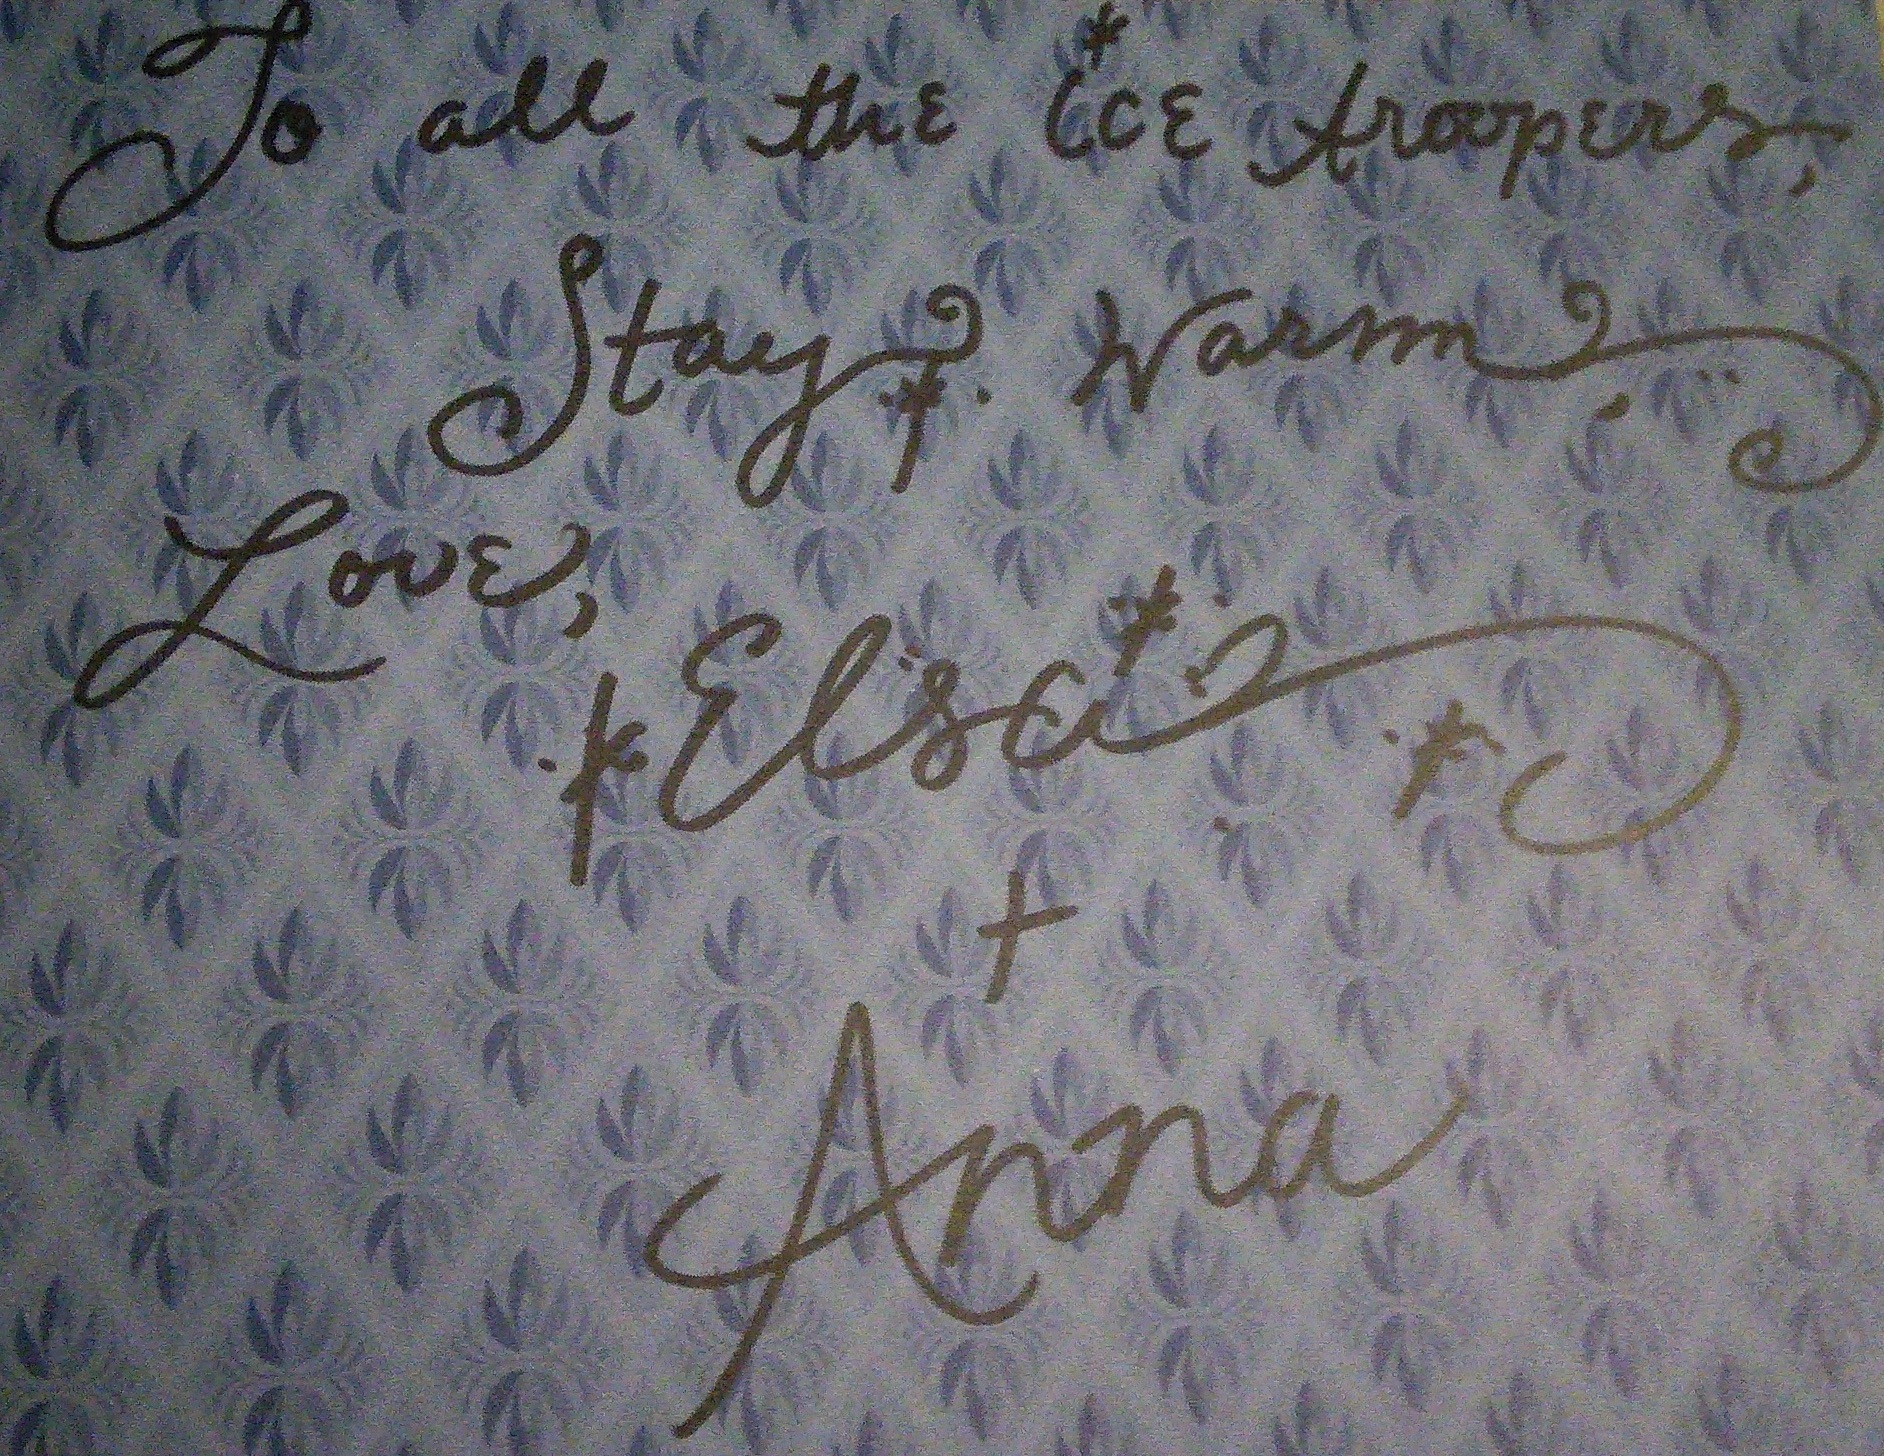 To all the ice troopers,
Stay Warm,
Love,
Elsa
+
Anna